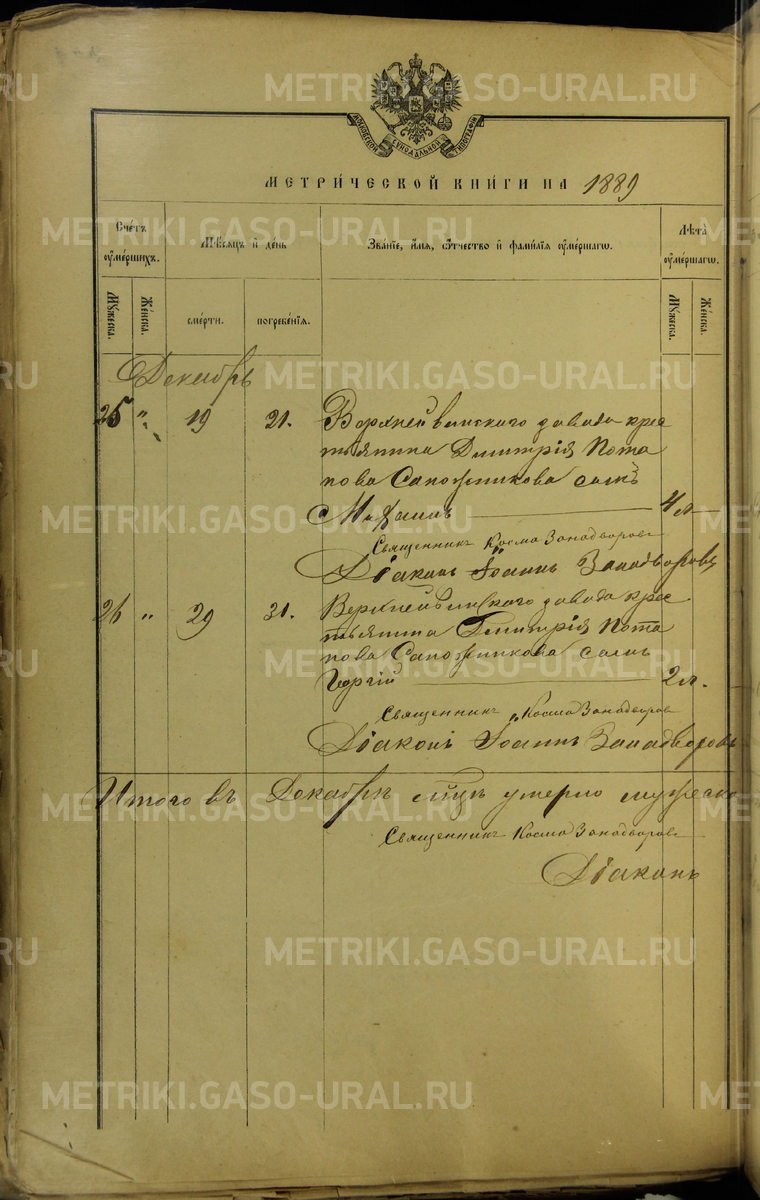 METRIKI.GASO-URAL.RU
МОСКОВСКОЙ СУНОДАЛЬНОЙ ТИПОГРАФІИ
МЕТРИ́ЧЕСКОЙ КНИ́ГИ НА 1889
Сче́тъ ᲂу҆ме́ршихъ.
Мѣ́сяцъ и҆ де́нь
Зва́нїе, и҆́мя, ѻ҆́тчество и҆ фамилїя ᲂу҆ме́ршагѡ.
Лѣ́та ᲂу҆ме́ршагѡ.
Мꙋ́жеска.
Же́нска.
сме́рти.
погребе́нїя.
Мꙋ́жеска.
Же́нска.
Декабрь
25 " 19 21. Верхнейвинскаго завода крес
тьянина Димитрія Пота
пова Сапожникова сынъ
Михаилъ 4 л
Священникъ Косма Занадворовъ
Діаконъ Іоаннъ Занадворовъ
26 " 29 31. Верхнейвинскаго завода крес
тьянина Димитрія Пота
пова Сапожникова сынъ
Георгій 2 л.
Священникъ Косма Занадворовъ
Діаконъ Іоаннъ Занадворовъ
Итого въ Декабрѣ м҃цѣ умерло мужеска
Священникъ Косма Занадворовъ
Діаконъ